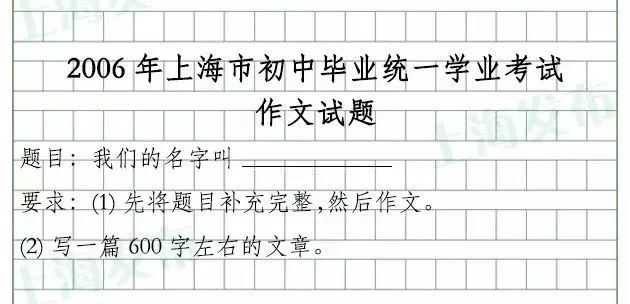 上海发布
2006 年上海市初中毕业统一学业考试
作文试题
上海发布
题目：我们的名字叫 ____________
要求：(1) 先将题目补充完整，然后作文。
(2) 写一篇 600 字左右的文章。
上海发布